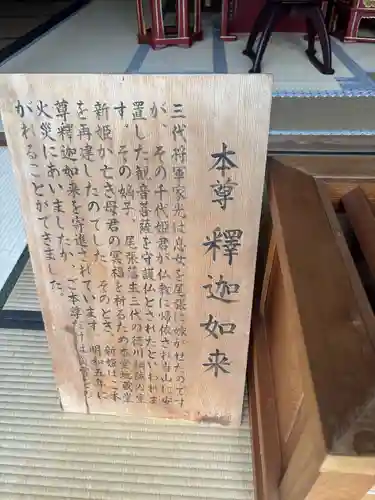 本尊 釋迦如来
三代将軍家光は息女を尾張に嫁がせたのです
が、その千代姫君が仏教に帰依され当山に安
置した観音菩薩を守護仏とされたといわれま
す。その嫡子、尾張藩主三代の徳川綱誠の室
新姫が亡き母君の冥福を祈るため本堂地蔵堂
を再建したのでした。そのとき、新姫はご本
尊釋迦如来を寄進されています。明和五年に
火災にあいましたが、ご本尊だけは
がれることができました。